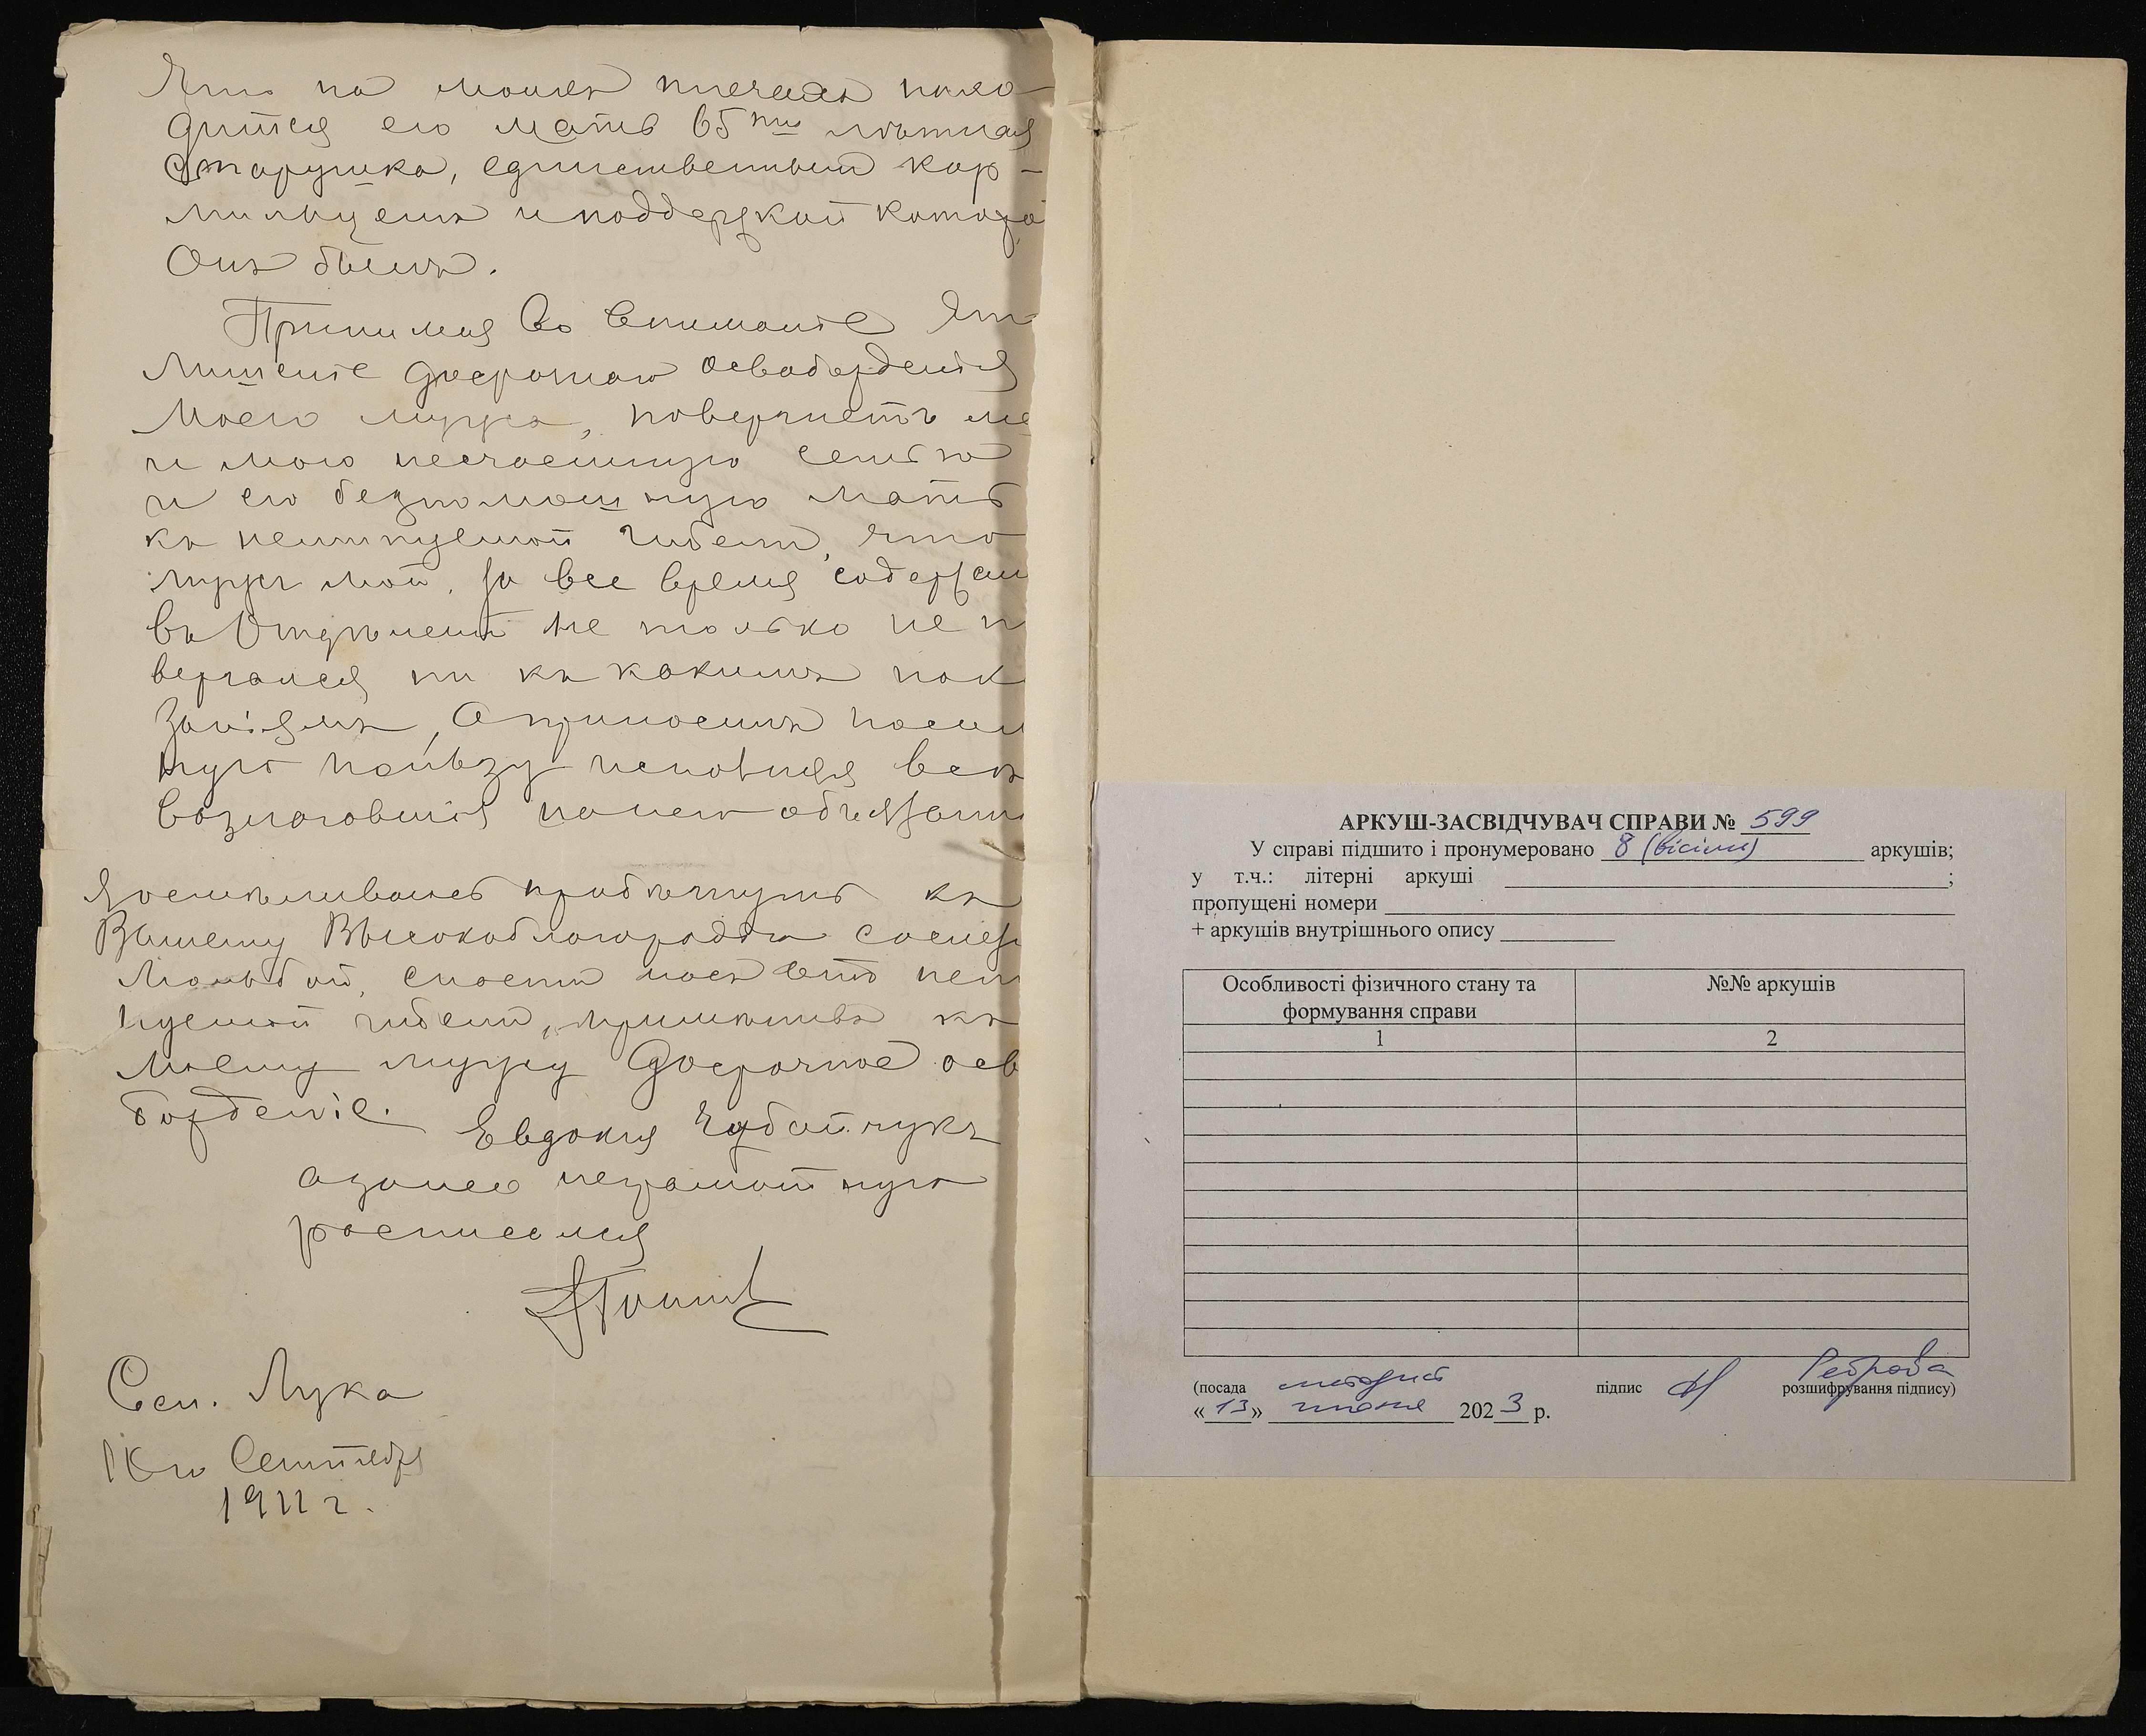 Что на моихъ плечахъ нахо-
дится его мать 65ти лѣтняя
старушка, единственный кор-
мильцемъ и поддержкой которо
онъ былъ.
Принимая во вниманіе что
лишеніе досрочнаго освобожденія
моего мужа, повергнетъ ме
и мою несчастную семью
и его безпомощную мать
къ неминуемой гибели, что
мужъ мой, за все время содержан
въ Отдѣленіи не только не п
вергался ни къ какимъ нак
заніямъ, а приносилъ посил
ную пользу исполняя всѣ
возлоговшія на немъ обязанн
Я осмѣливаюсь прибѣгнуть къ
Вашему Высокоблагородію со слез
мольбой, спасти насъ отъ неми
нуемой гибели, примѣнивъ къ
моему мужу досрочное осв
божденіе.
Евдокия Чабайчукъ
а за нее неграмотную
росписался
Сел. Лука
Сентября
1911 г.
АРКУШ-ЗАСВІДЧУВАЧ СПРАВИ № 599
У справі підшито і пронумеровано 8 (вісім) аркушів;
у т.ч.: літерні аркуші ;
пропущені номери
+ аркушів внутрішнього опису
Особливості фізичного стану та формування справи
№№ аркушів
1 2
(посада методист підпис Реброва розшифрування підпису)
«13» июня 2023 р.